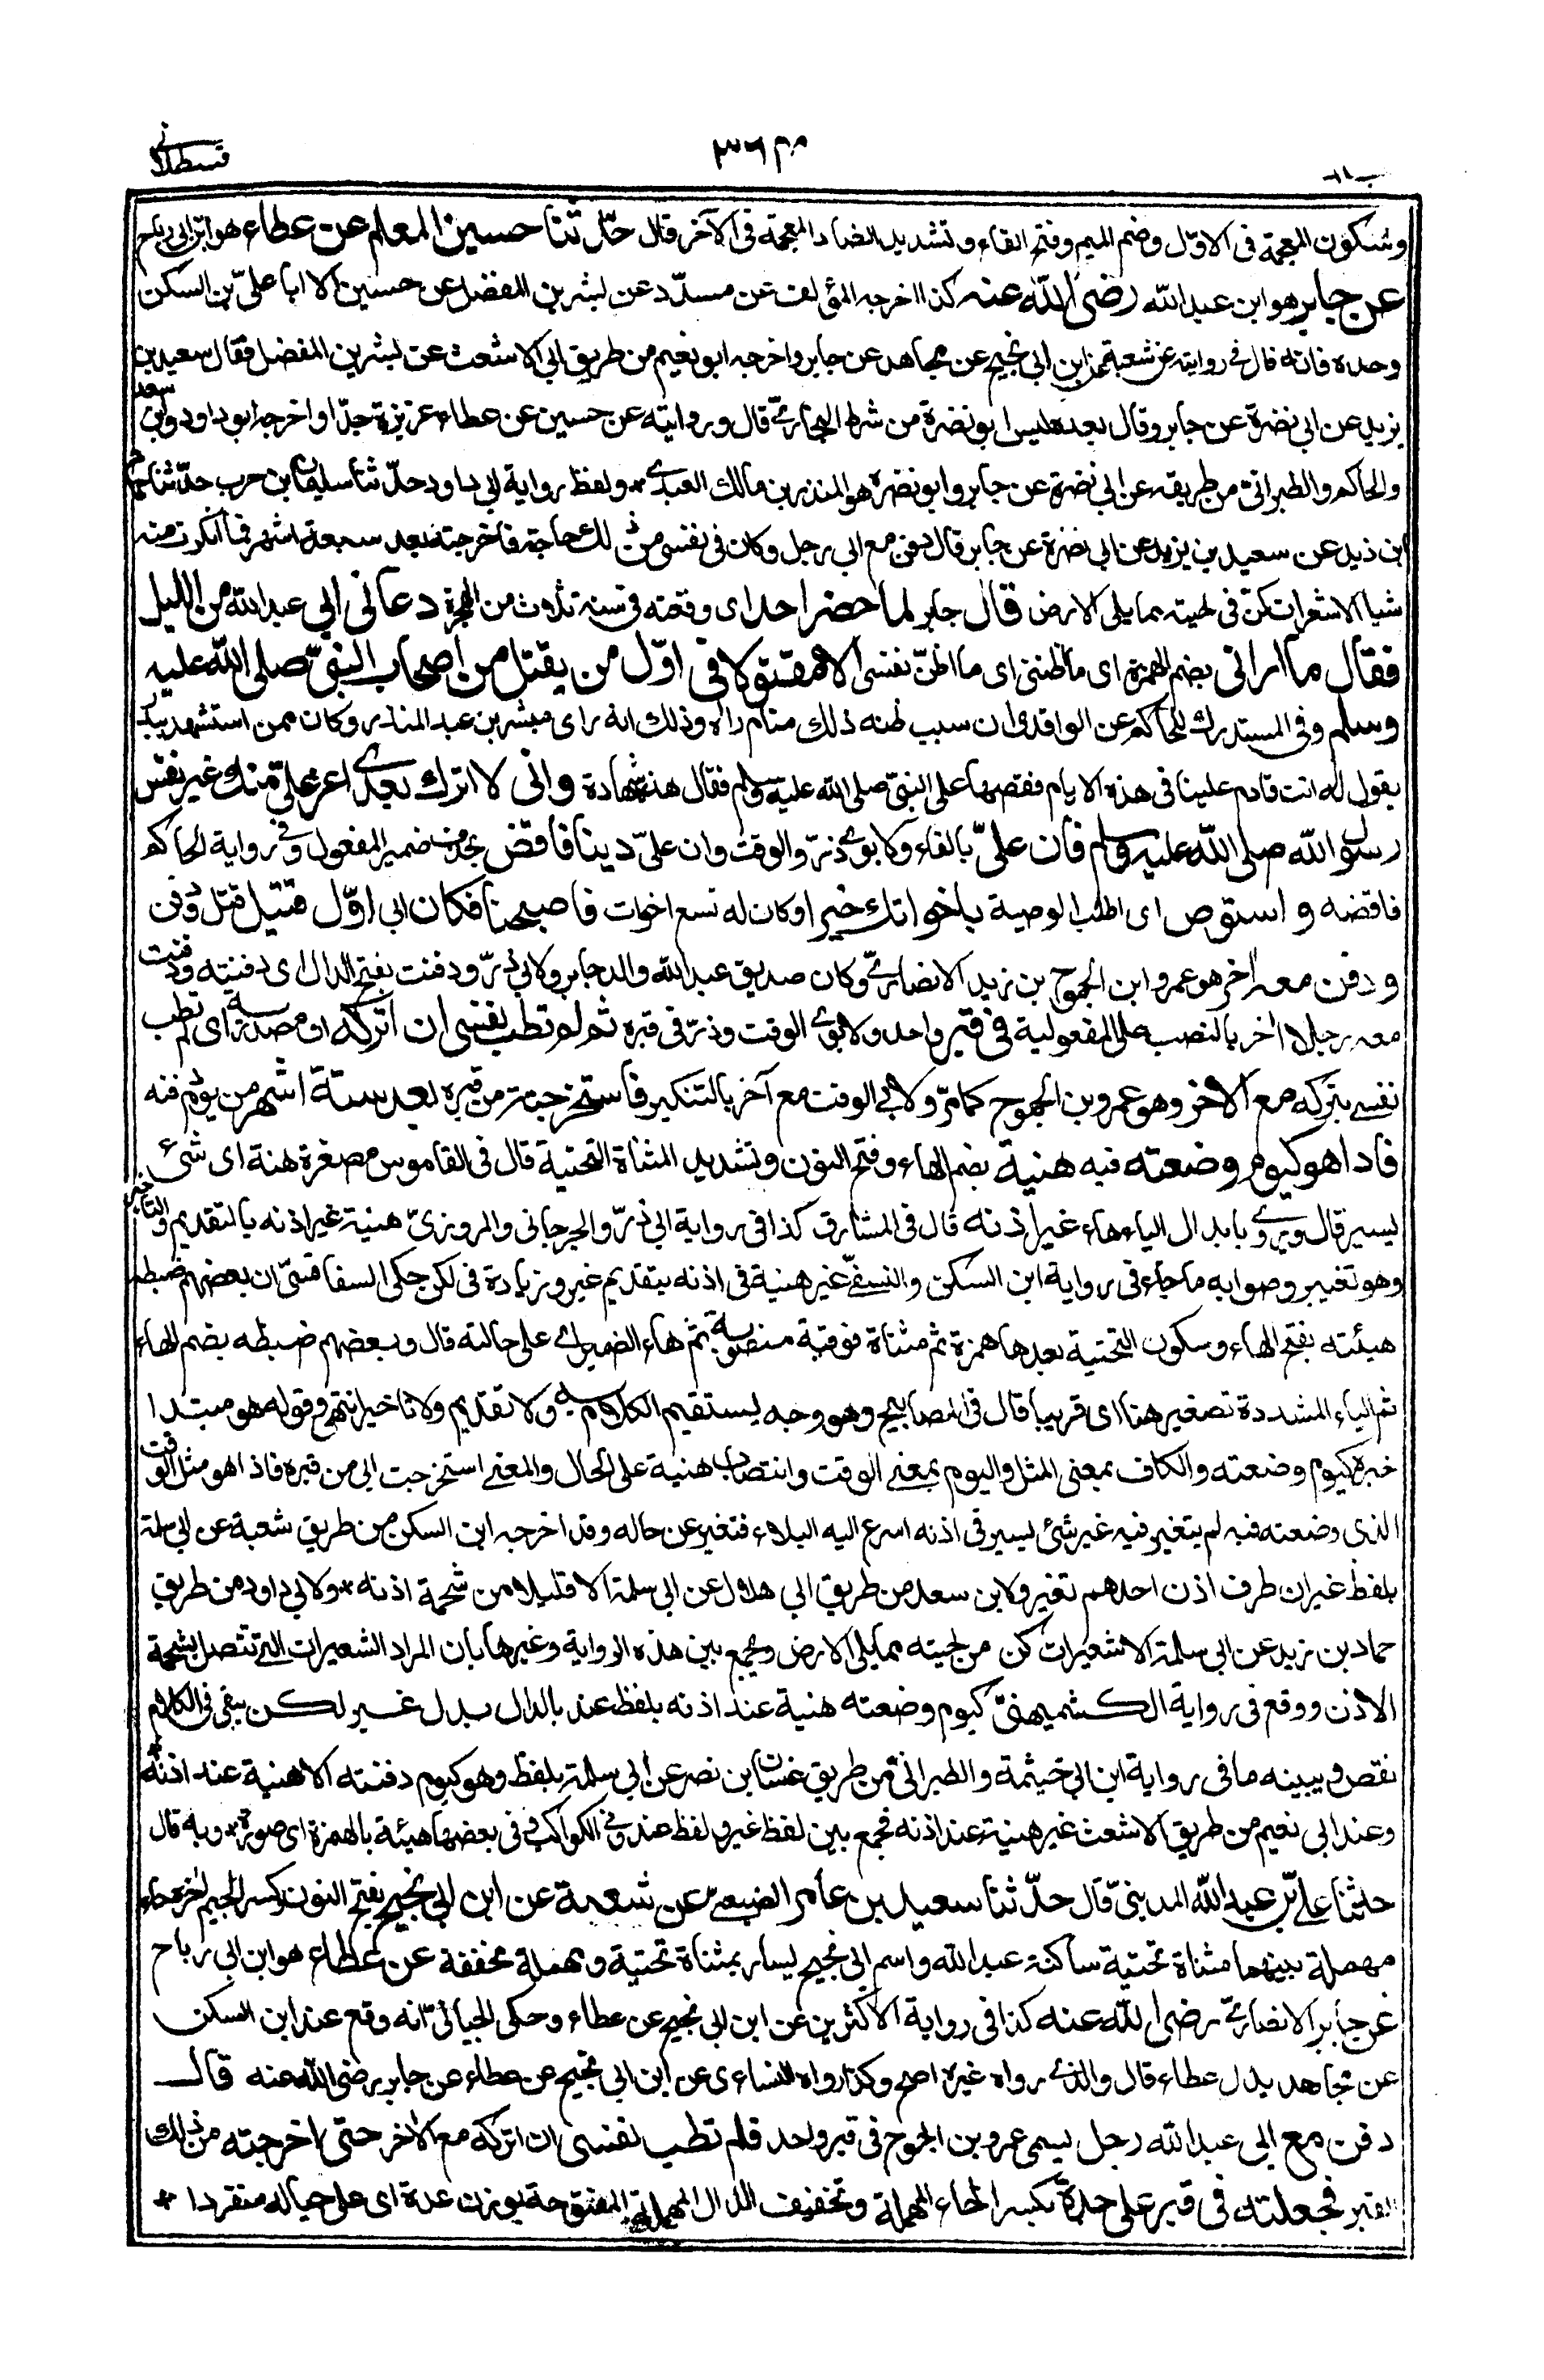 قسطلانی
٣٦٣
وسكون المعجمة فى الاوّل وضم الميم وفتح الفاء وتشديد الضاد المعجمة فى الآخر قال حدّثنا حسين المعلم عن عطاء هو ابن ابى رباح
عن جابر هو ابن عبد الله رضى الله عنه كذا اخرجه المؤلف عن مسدّد عن بشر بن المفضل عن حسين الا ابا علىّ بن السكن
وحده فانه قال فى روايته عن شعبة عن ابن ابى نجيح عن مجاهد عن جابر واخرجه ابو نعيم من طريق ابى الاشعث عن بشر بن المفضل فقال سعيد بن
يزيد عن ابى نضرة عن جابر وقال بعده ليس ابو نضرة من شرط البخارىّ قال وروايته عن حسين عن عطاء عزيزة جدّا واخرجه ابو داود وابن سعد
والحاكم والطبرانىّ من طريقه عن ابى نضرة عن جابر وابو نضرة هو المنذر بن مالك العبدى * ولفظ رواية ابى داود حدّثنا سليمان بن حرب حدّثنا حماد
ابن زيد عن سعيد بن يزيد عن ابى نضرة عن جابر قال دفن مع ابى رجل وكان فى نفسى من ذلك حاجة فاخرجته بعد ستة اشهر فما انكرت منه
شيا الا شعرات كنّ فى لحيته مما يلى الارض قال جابر لما حضر احد اى وقعته فى سنة ثلاث من الهجرة دعانى ابى عبد الله من الليل
فقال ما ارانى بضم الهمزة اى ما اظننى اى ما اظنّ نفسى الا مقتولا فى اوّل من يقتل من اصحاب النبىّ صلى الله عليه
وسلم وفى المستدرك للحاكم عن الواقدى ان سبب ظنه ذلك منام راه وذلك انه راى مبشر بن عبد المنذر وكان ممن استشهد ببدر
يقول له انت قادم علينا فى هذه الايام فقصها على النبىّ صلى الله عليه وسلم فقال هذه شهادة وانى لا اترك بعدى اعز علىّ منك غير نفس
رسول الله صلى الله عليه وسلم فان علىّ بالفاء ولابوى ذرّ والوقت وان علىّ دينا فاقض بحذف ضمير المفعول وفى رواية الحاكم
فاقضه واستوص اى اطلب الوصية باخواتك خيرا وكان له تسع اخوات فاصبحنا فكان ابى اوّل قتيل قتل ودفن
ودفن معه اخر هو عمرو ابن الجموح بن زيد الانصارىّ وكان صديق عبد الله والد جابر ولابى ذرّ ودفنت بفتح الدال اى دفنته ودفنت
معه رجلا اخر بالنصب على المفعولية فى قبر واحد ولابوى الوقت وذرّ فى قبره ثم لم تطب نفسى ان اتركه ان مصدرية اى لم تطب
نفسى بتركه مع الاخر وهو عمرو بن الجموح كما مرّ ولابى الوقت مع آخر بالتنكير فاستخرجته من قبره بعد ستة اشهر من يوم دفنه
فاذا هو كيوم وضعته فيه هنية بضم الهاء وفتح النون وتشديد المثناة التحتية قال فى القاموس مصغرة هنة اى شئ
يسير قال ويروى بابدال الياء هاء غير اذنه قال فى المشارق كذا فى رواية ابى ذرّ والجرجانى والمروزىّ هنية غير اذنه بالتقديم والتاخير
وهو تغيير وصوابه ما جاء فى رواية ابن السكن والنسفىّ غير هنية فى اذنه بتقديم غير وزيادة فى لكن حكى السفاقسىّ ان بعضهم ضبطه
هيئته بفتح الهاء وسكون التحتية بعدها همزة ثم مثناة فوقية منصوبة ثم هاء الضمير اى على حالته قال وبعضهم ضبطه بضم الهاء
ثم الياء المشددة تصغير هنا اى قريبا قال فى المصابيح وهو وجه يستقيم الكلام به ولا تقديم ولا تاخير انتهى وقوله هو مبتدا
خبره كيوم وضعته والكاف بمعنى المثل واليوم بمعنى الوقت وانتصاب هنية على الحال والمعنى استخرجت ابى من قبره فاذا هو مثل الوقت
الذى وضعته فيه لم يتغير فيه غير شئ يسير فى اذنه اسرع اليه البلاء فتغير عن حاله وقد اخرجه ابن السكن من طريق شعبة عن ابى سلمة
بلفظ غير ان طرف اذن احدهم تغير ولابن سعد من طريق ابى هلال عن ابى سلمة الا قليلا من شحمة اذنه * ولابى داود من طريق
حماد بن زيد عن ابى سلمة الا شعيرات كن من لحيته مما يلى الارض ويجمع بين هذه الرواية وغيرها بان المراد الشعيرات التى تتصل بشحمة
الاذن ووقع فى رواية الكشميهنىّ كيوم وضعته هنية عند اذنه بلفظ عند بالدال بدل غير لكن يبقى فى الكلام
نقص ويبينه ما فى رواية ابن ابى خيثمة والطبرانىّ من طريق غسان بن نصر عن ابى سلمة بلفظ وهو كيوم دفنته الا هنية عند اذنه *
وعند ابى نعيم من طريق الاشعث غير هنية عند اذنه فجمع بين لفظ غير ولفظ عند وفى الكواكب فى بعضها هيئة بالهمزة اى صورة * وبه قال
حدثنا علىّ بن عبد الله المدينىّ قال حدّثنا سعيد بن عامر الضبعىّ عن شعبة عن ابن ابى نجيح بفتح النون وكسر الجيم اخره حاء
مهملة بينهما مثناة تحتية ساكنة عبد الله واسم ابى نجيح يسار بمثناة تحتية ومهملة مخففة عن عطاء هو ابن ابى رباح
عن جابر الانصارىّ رضى الله عنه كذا فى رواية الاكثرين عن ابن ابى نجيح عن عطاء وحكى الجيانىّ انه وقع عند ابن السكن
عن مجاهد بدل عطاء قال والذى رواه غيره اصح وكذا رواه النساءى عن ابن ابى نجيح عن عطاء عن جابر رضى الله عنه قال
دفن مع ابى عبد الله رجل يسمى عمرو بن الجموح فى قبر واحد فلم تطب نفسى ان اتركه مع الاخر حتى اخرجته من ذلك
القبر فجعلته فى قبر على حدة بكسر الحاء المهملة وتخفيف الدال المهملة المفتوحة بوزن عدة اى على حياله منفردا *